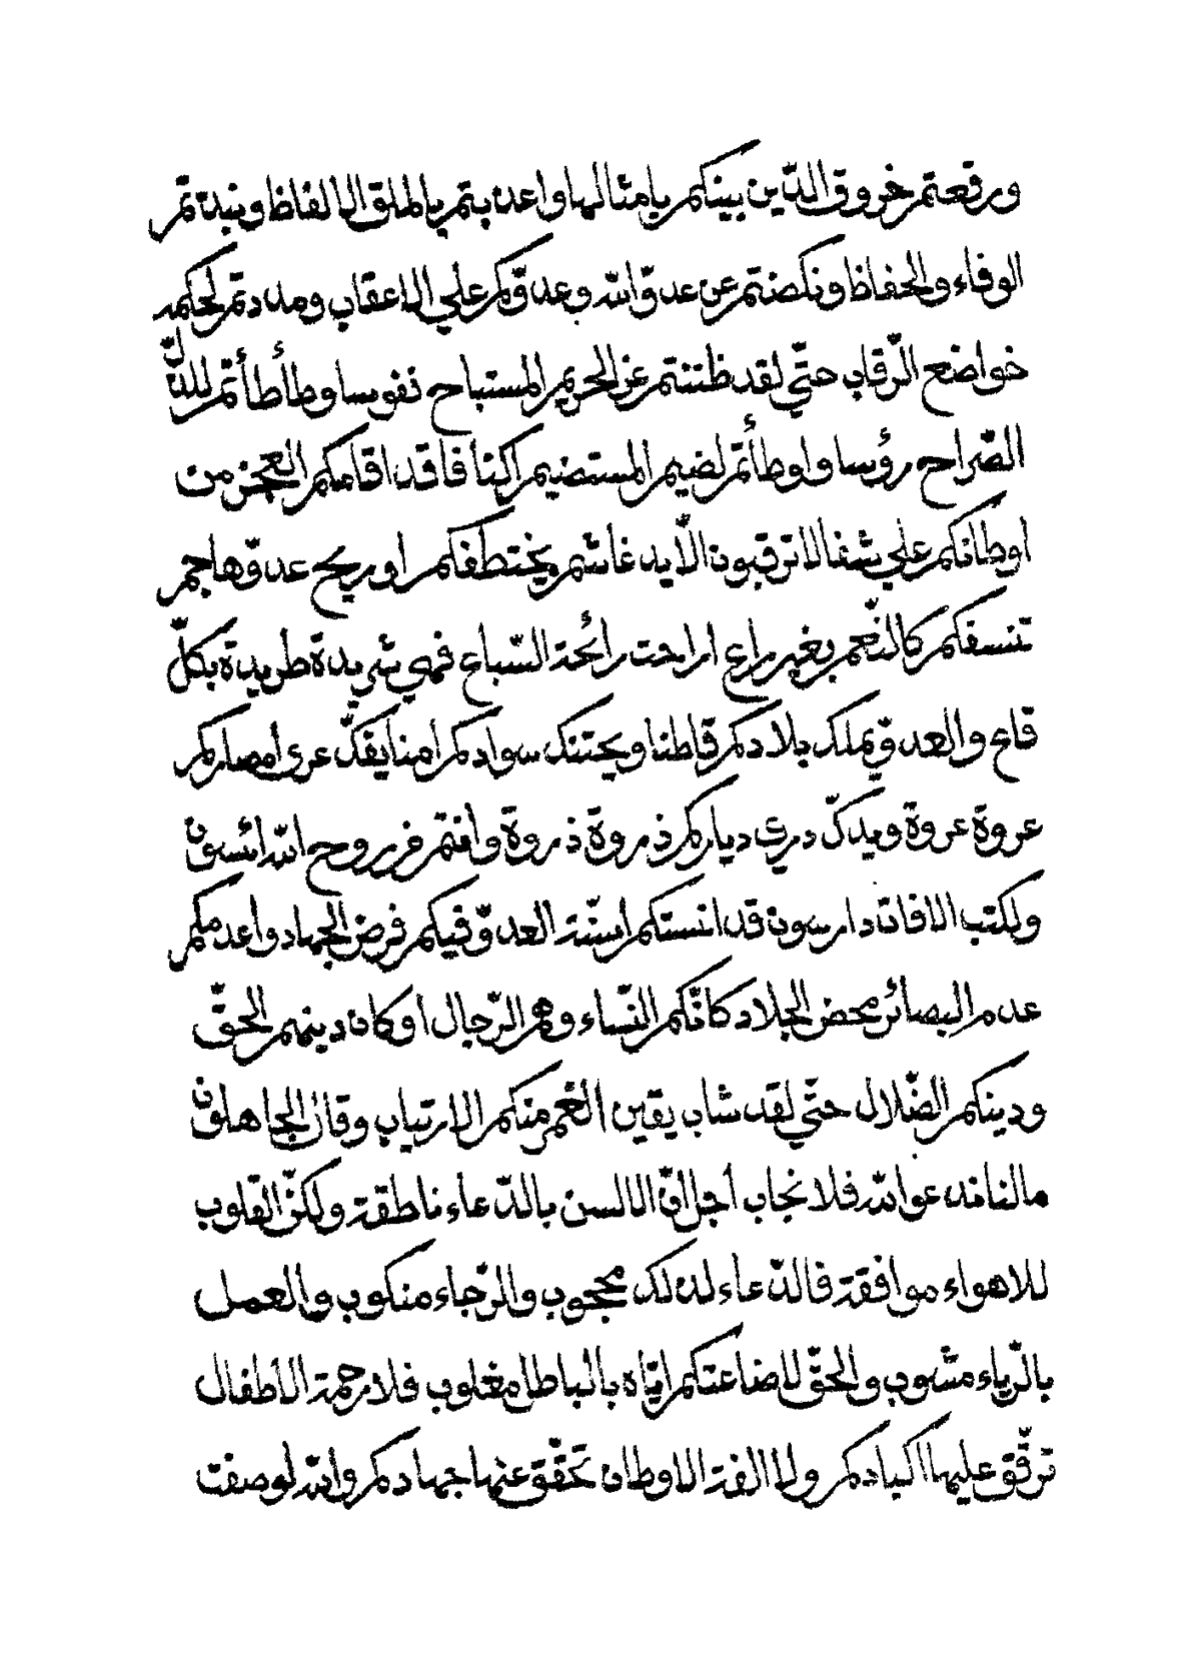 ورقعتم خروق الدّين بينكم بامثالها واعذبتم بالملق الالفاظ ونبذتم
الوفاء والحفاظ ونكصتم عن عدوّ الله وعدوّكم علي الاعقاب ومددتم لحكمه
خواضع الرّقاب حتّي لقد ظننتم عن الحريم المستباح نفوسا وطأطأتم للذلّ
الصّراح رؤسا واوطأتم لضيم المستضيم اكنافا قد اقامكم العجز من
اوطانكم علي شفا لا ترقبون الّا يد غاشم يختطفكم او ريح عدوّ هاجم
تنسفكم كالنّعم بغير راع اراحت رائحة السّباع فهي شريدة طريدة بكلّ
قاع والعدوّ يملك بلادكم قاطنا ويحتنك سوادكم امنا يفكّ عرى أمصاركم
عروة عروة ويدكّ ذري دياركم ذروة ذروة وانتم من روح الله ائسون
ولكتب الافات دارسون قد انستكم أسنّة العدوّ فيكم فرض الجهاد واعدمكم
عدم البصائر محض الجلاد كانّكم النّساء وهم الرّجال او كان دينهم الحقّ
ودينكم الضّلال حتّي لقد شاب يقين الغمر منكم الارتياب وقال الجاهلون
مالنا ندعو الله فلا نجاب أجل انّ الالسن بالدّعاء ناطقة ولكنّ القلوب
للاهواء موافقة فالدّعاء لذلك محجوب والرّجاء منكوب والعمل
بالرّياء مشوب والحقّ لاضاعتكم ايّاه بالباطل مغلوب فلا رحمة الاطفال
ترقّق عليها اكبادكم ولا الفة الاوطان تحقّق عنها جهادكم والله لو صفت